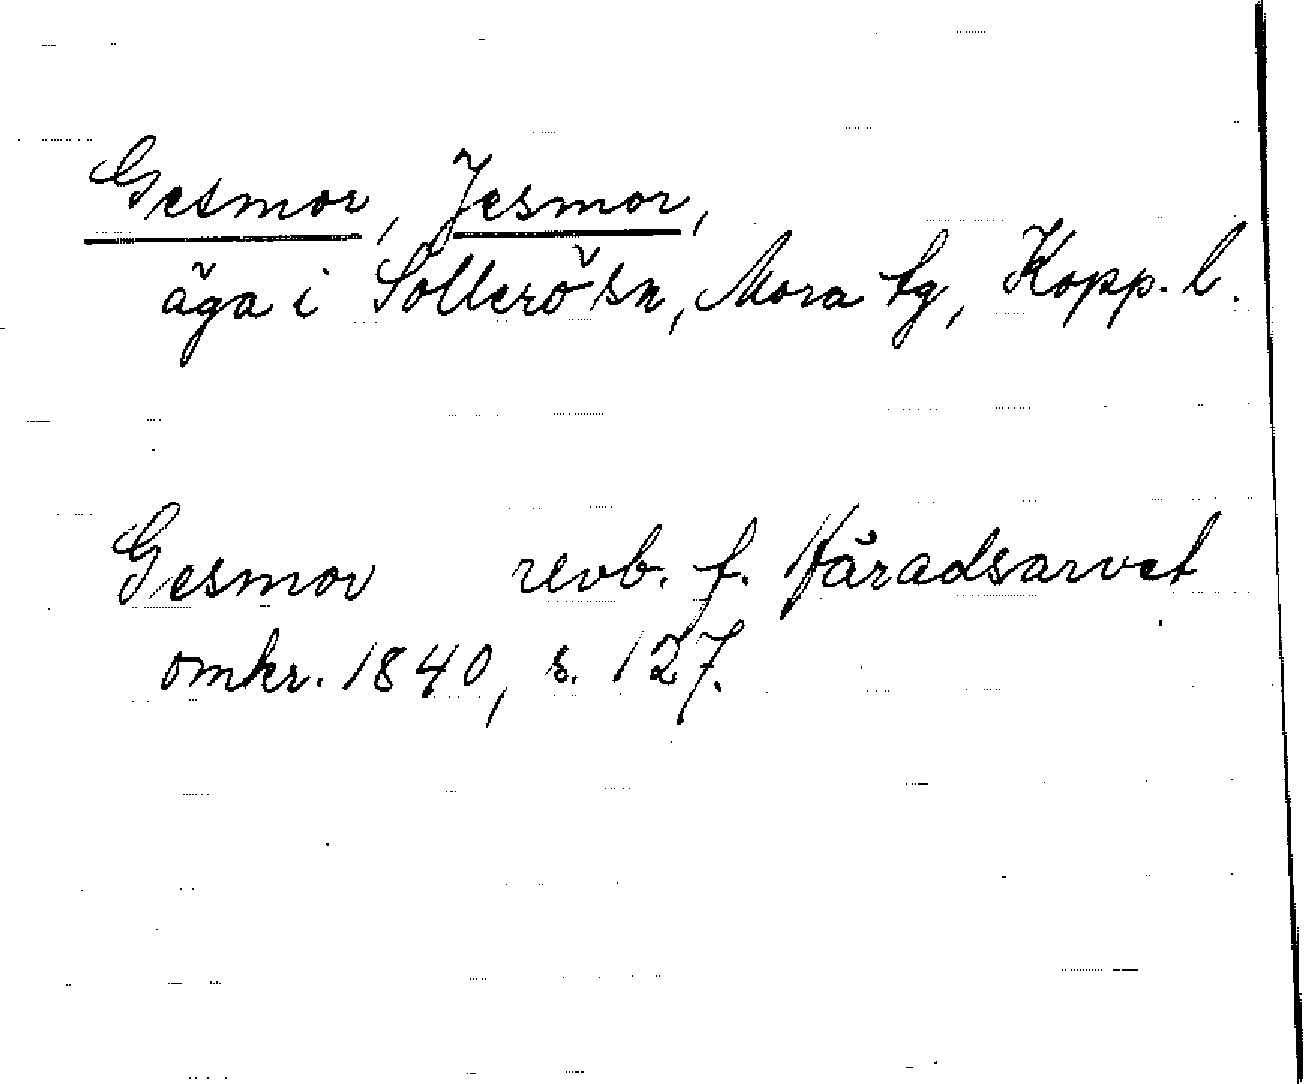 Gesmor, Jesmor,
äga i Sollerö sn, Mora tg, Kopp. l.
Gesmor revb. f. Häradsarvet
omkr. 1840, s. 127.